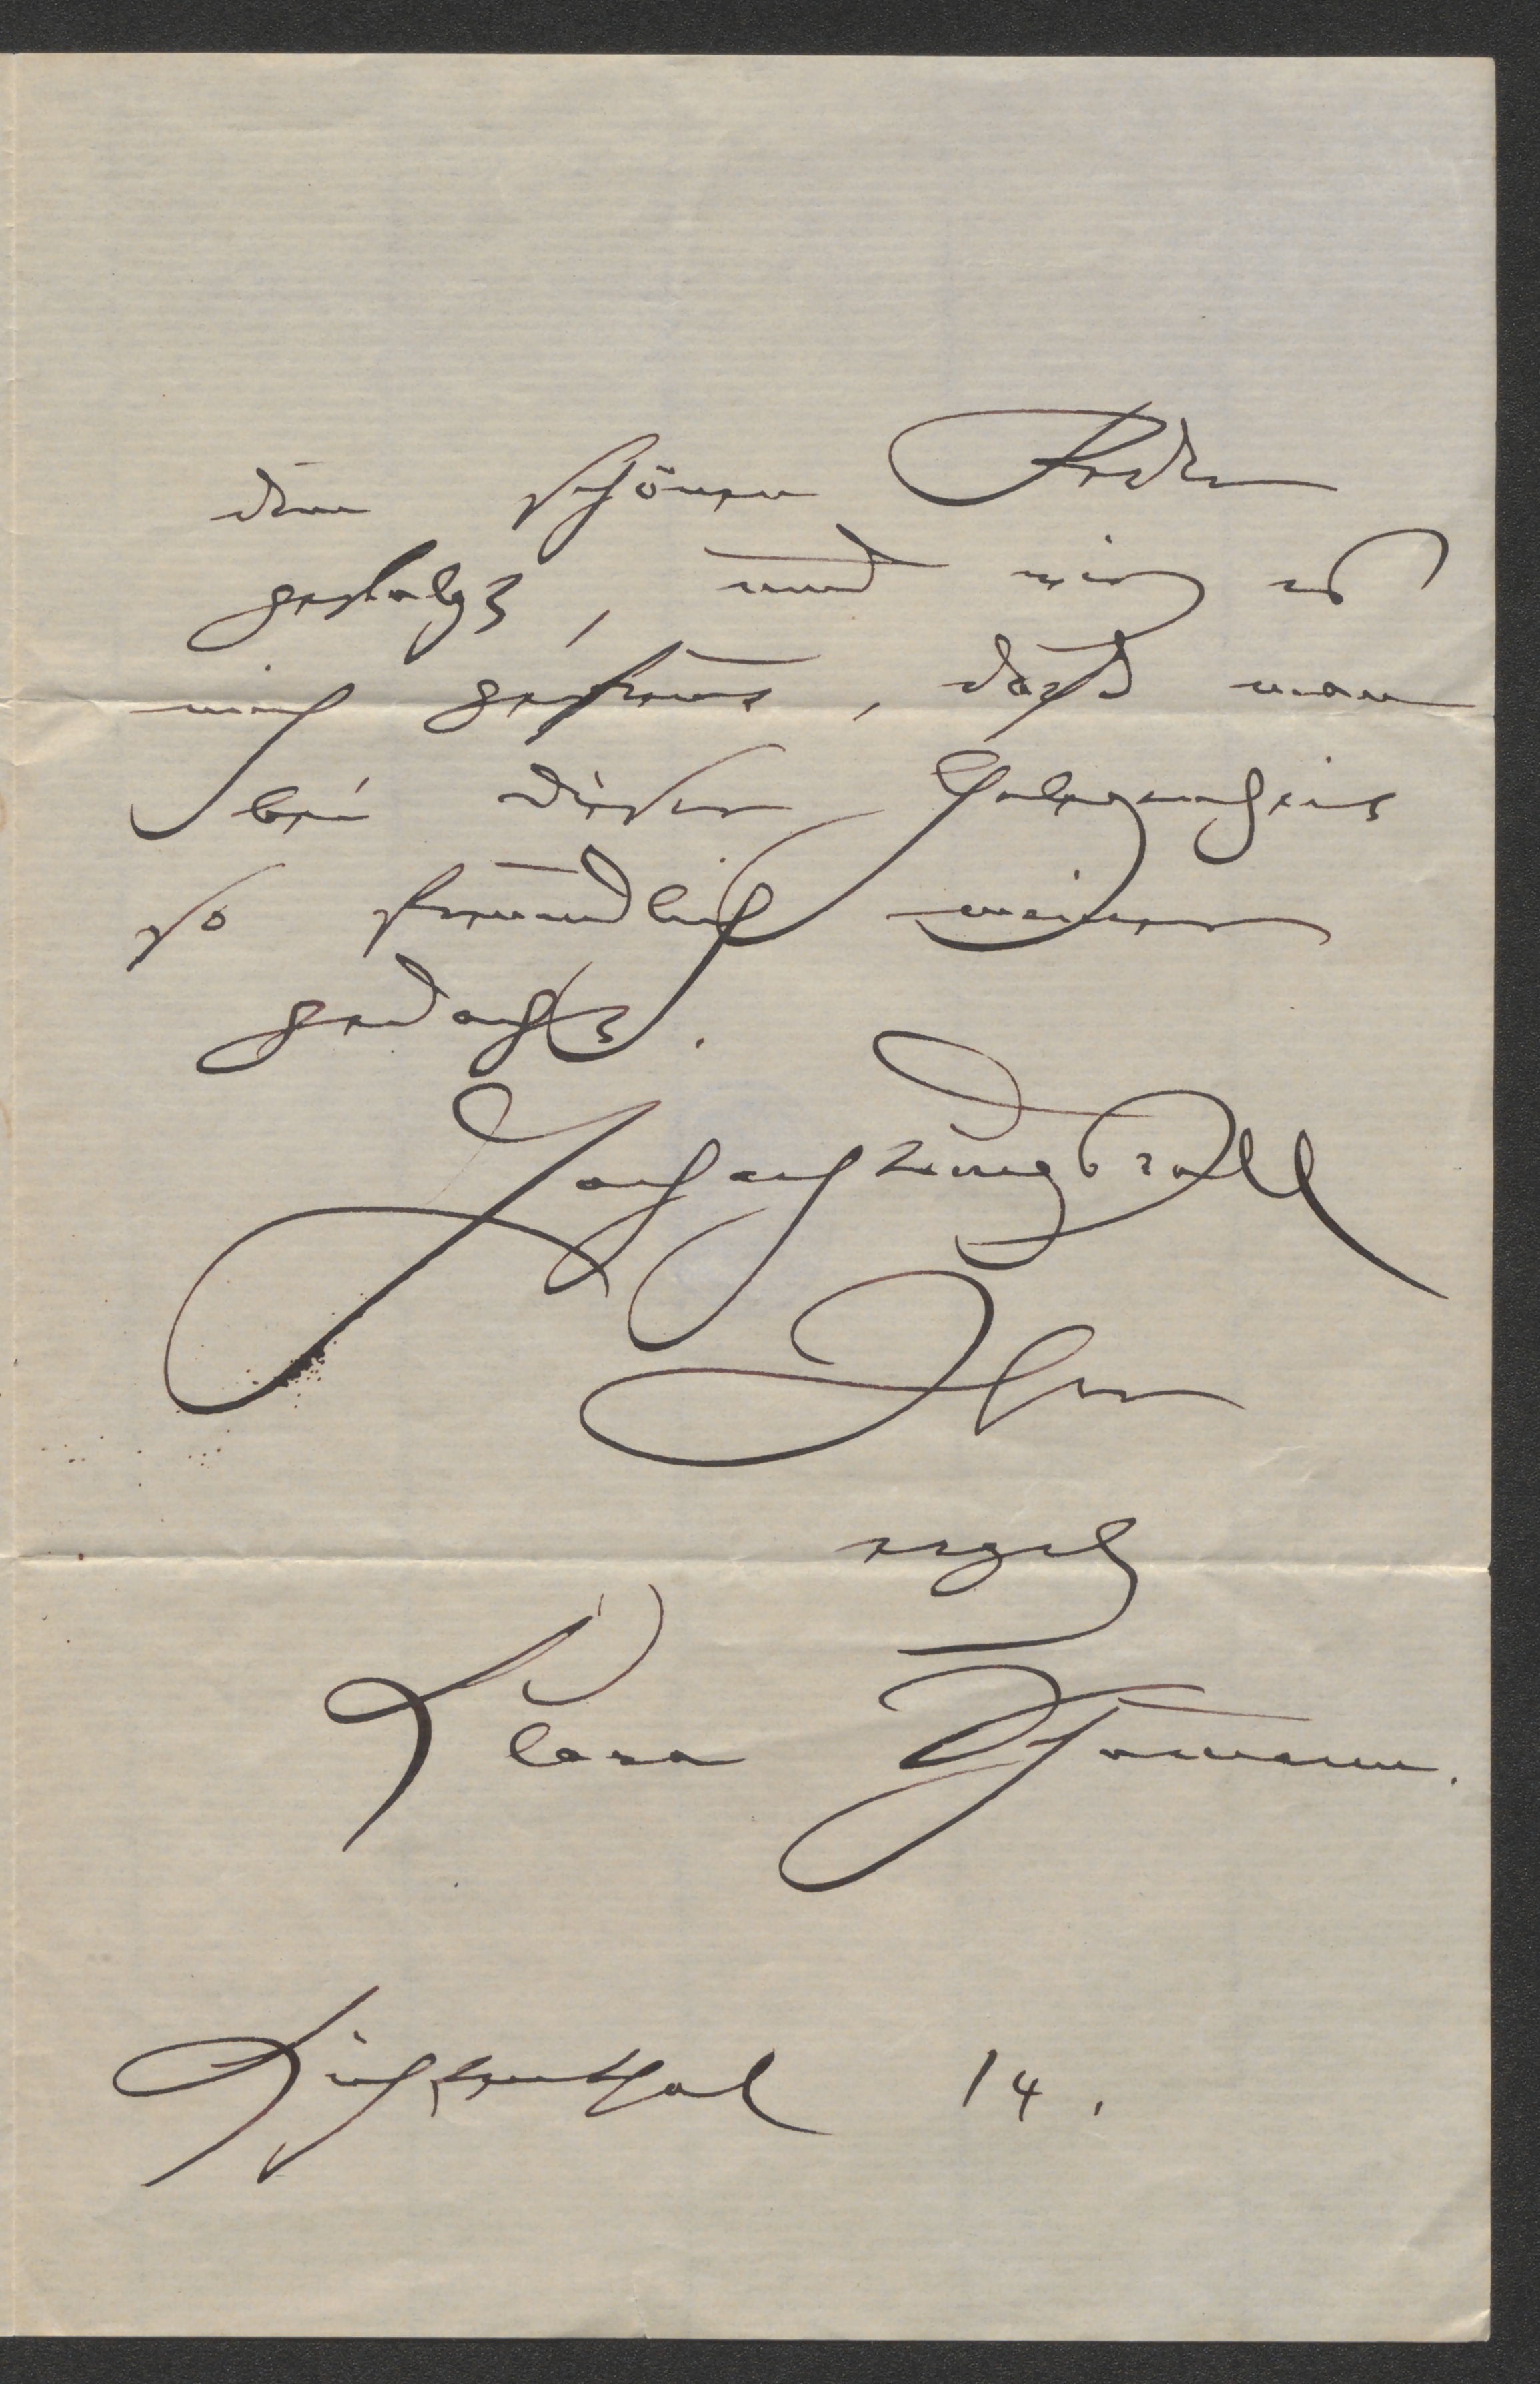 den schönen Reden
gefolgt, und wie es
mich gefreut, dass man
bei dieser Gelegenheit
so freundlich meiner
gedachte.
Hochachtungsvoll
Ihre
ergeb.
Klara
Lichtenthal 14.